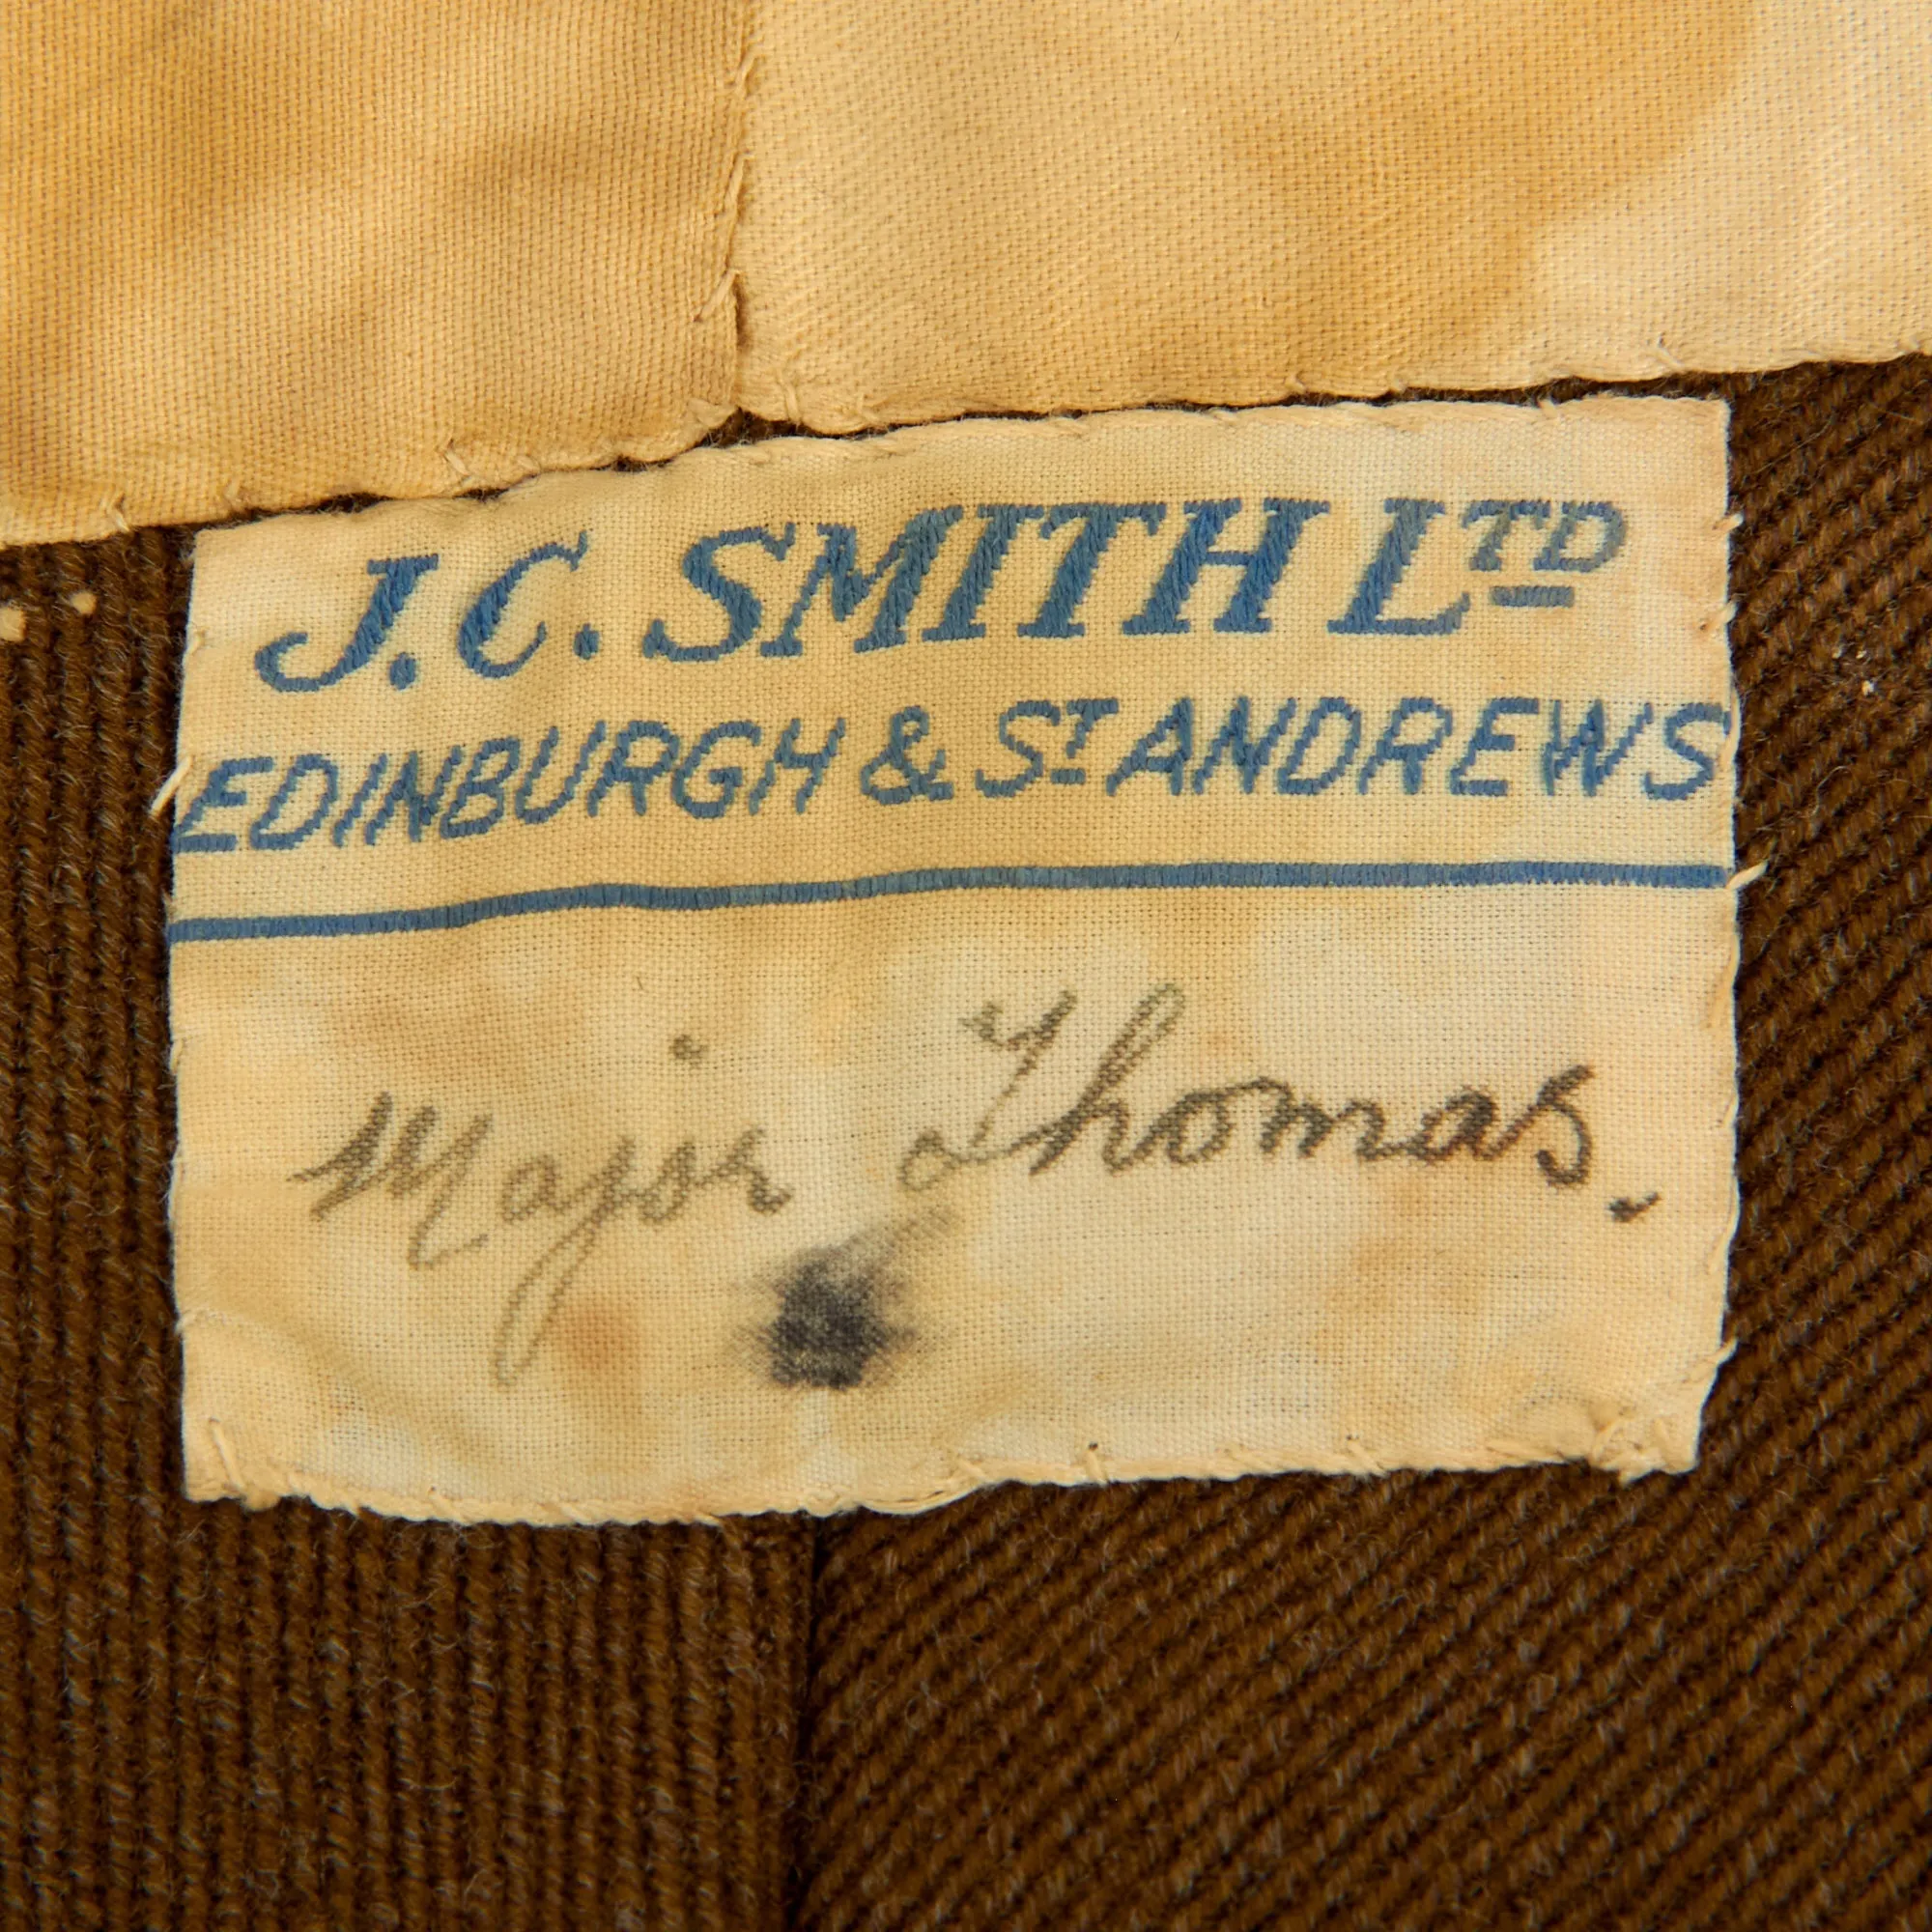 J.C. SMITH LTD
EDINBURGH & ST ANDREWS
Major Thomas.